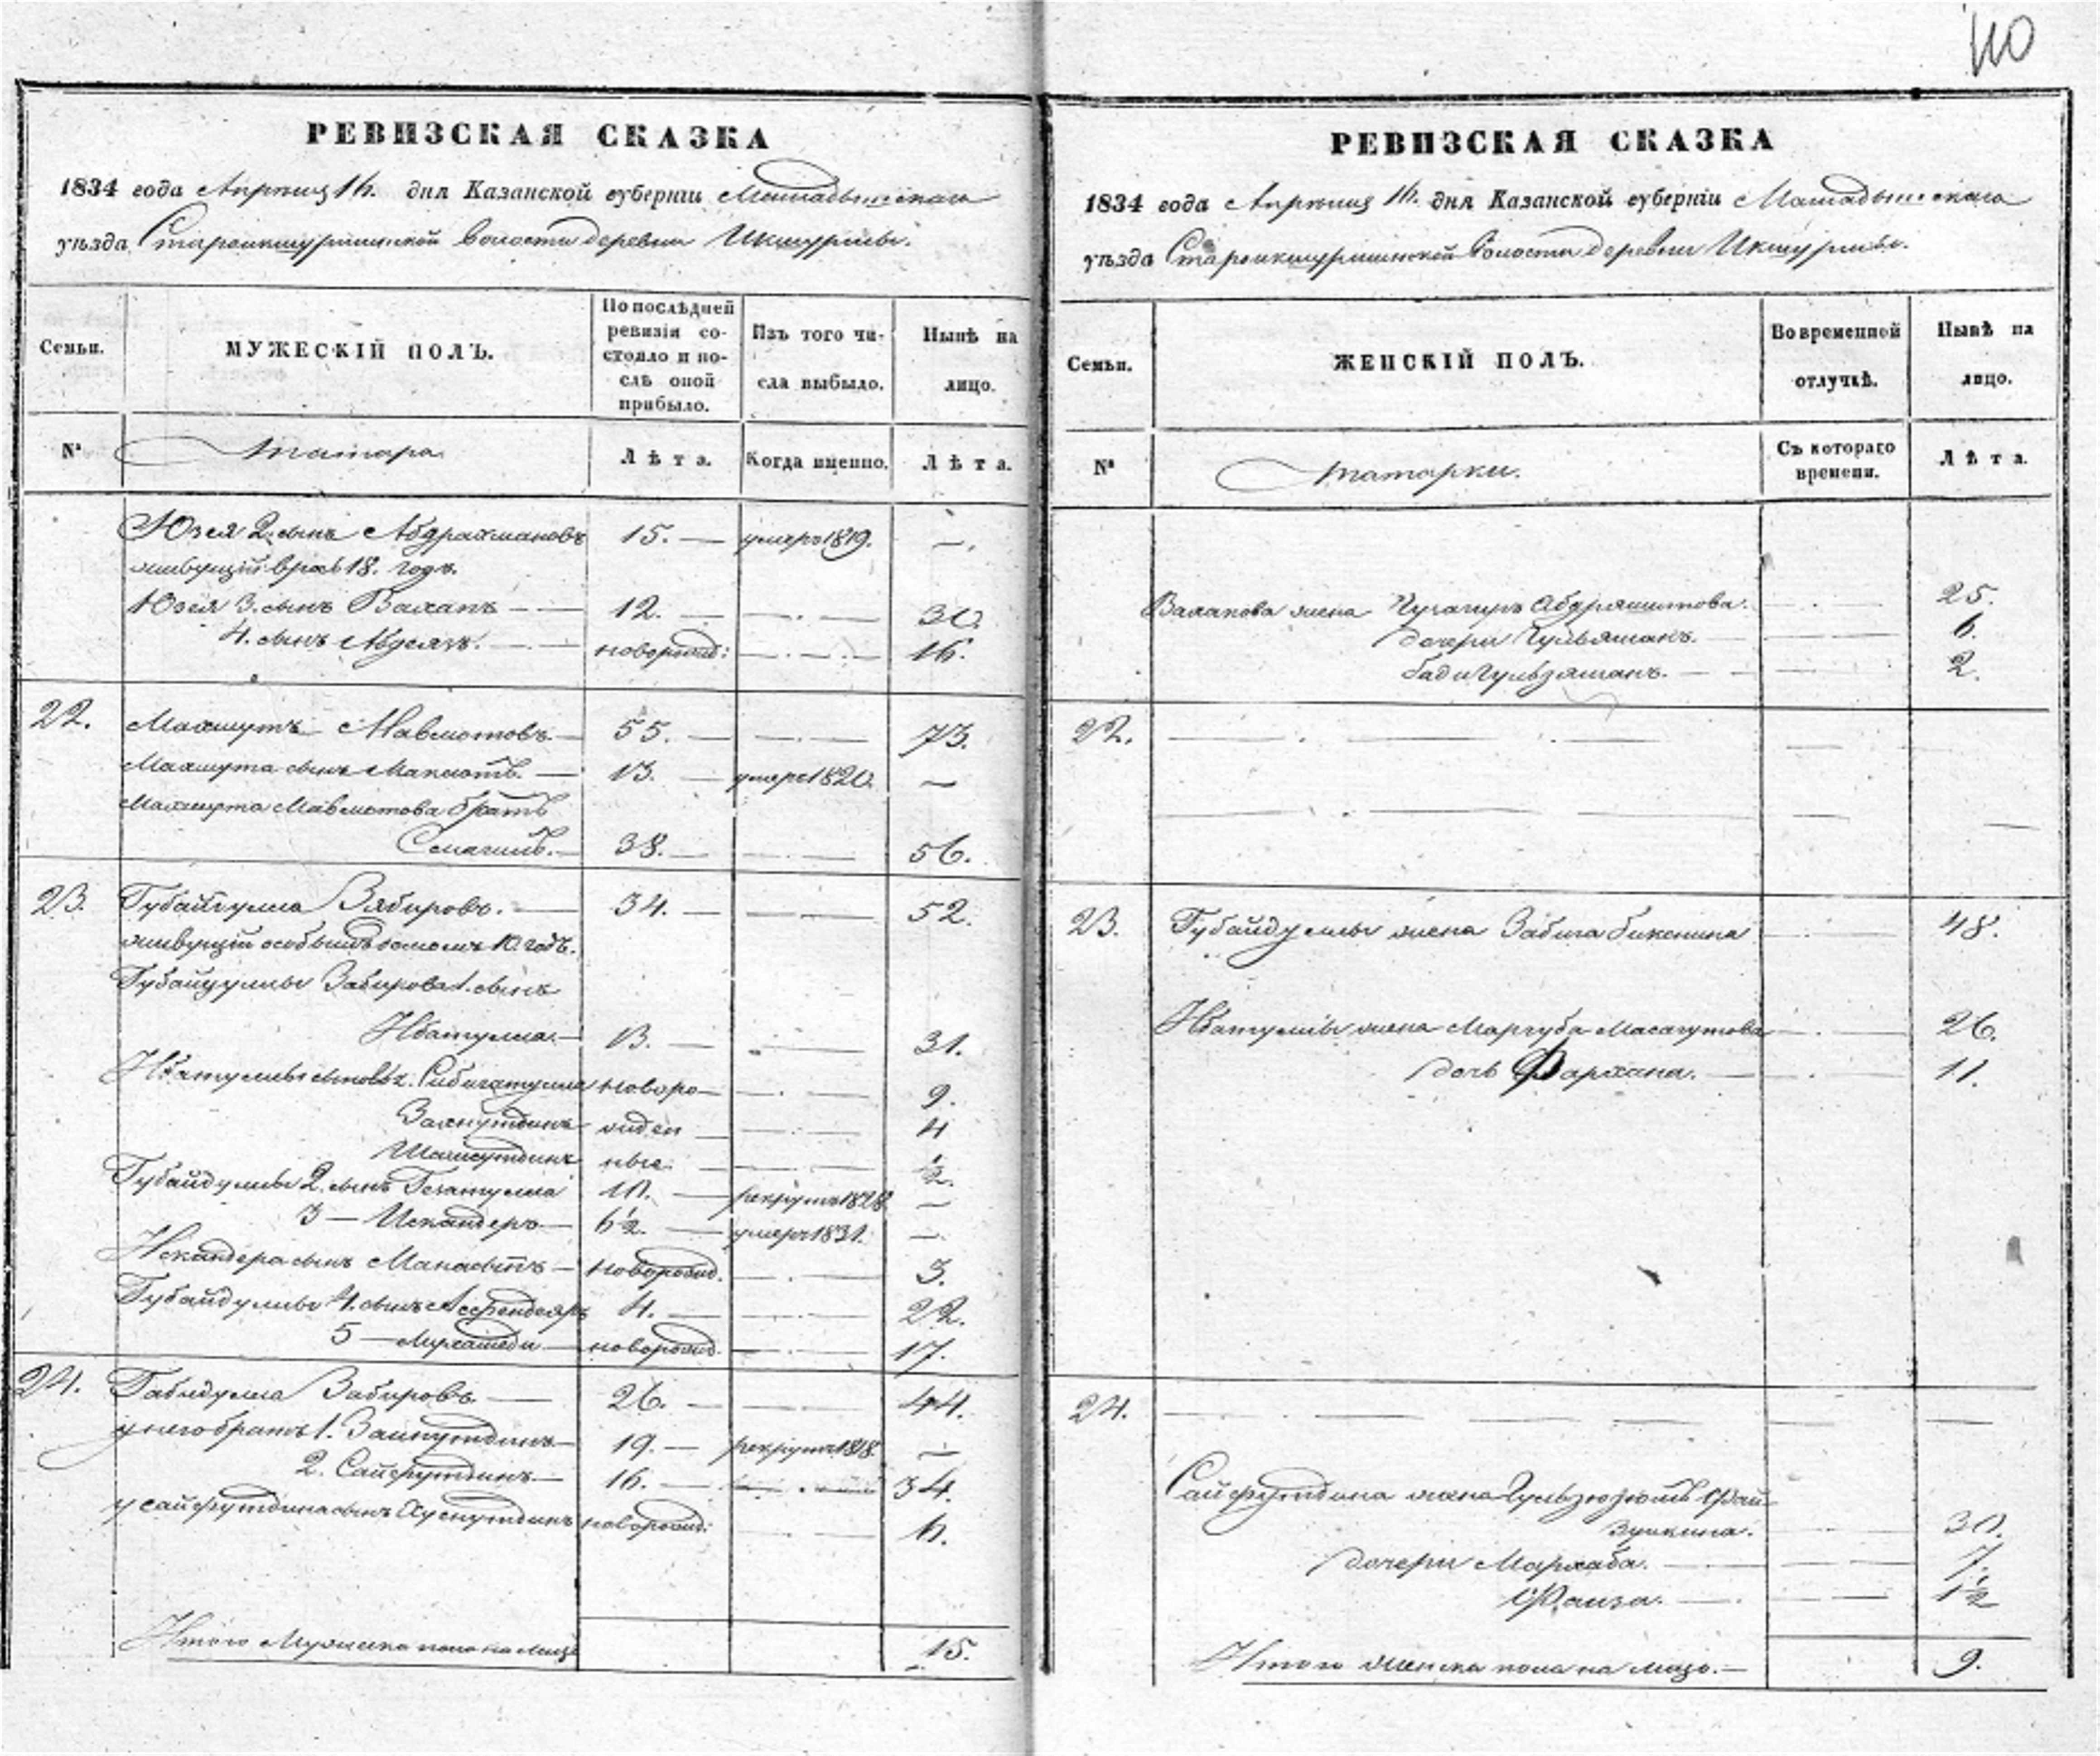 110
РЕВИЗСКАЯ СКАЗКА
1834 года Апрѣля 16. дня Казанской губерніи Мамадышскаго
уѣзда Староикшурминской волости деревни Икшурмы.
Семьи.
МУЖЕСКІЙ ПОЛЪ.
По послѣдней ревизіи состояло и послѣ оной прибыло.
Изъ того числа выбыло.
Нынѣ на лицо.
№
татара
Лѣта.
Когда именно.
Лѣта.
Юзея 2. сынъ Абдрахмановъ 15. — умеръ 1819. —.
живущій 18. годъ.
Юзея 3. сынъ Вахапъ — 12. — 30.
4. сынъ — новорожд: — 16.
22. Махмутъ Мавлютовъ — 55. — 73.
Махмута сынъ — 13. — умеръ 1820. —
Махмута Мавлютова братъ
Смагилъ. — 38. — 56.
23. Губайдулла Зябировъ. — 34. — 52.
живущій особымъ домомъ 10. годъ.
Губайдуллы Забирова 1. сынъ
Нбатулла. — 13. — 31.
Нбатуллы сыновья. Сибагатулла новоро — 9.
Заянутдинъ жден — 4
Шамсутдинъ ные. — ½.
Губайдуллы 2. сынъ 10. — рекрутъ 1828 —
3 — Искандеръ — 6½. — умеръ 1831. —.
Искандера сынъ — новорожд. — 3.
Губайдуллы 4. сынъ Асфендеяръ 4. — 22.
5 — новорожд. — 17.
24. Габидулла Забировъ — 26. — 44.
у него братъ 1. Зайнутдинъ — 19. — рекрутъ 1818. —
2. Сайфутдинъ. — 16. — 34.
у Сайфутдина сынъ Хуснутдинъ новорожд: 6.
Итого Мужеска пола на лицо 15.
РЕВИЗСКАЯ СКАЗКА
1834 года Апрѣля 16. дня Казанской губерніи Мамадышскаго
уѣзда Староикшурминской волости деревни Икшурмы.
Семьи.
ЖЕНСКІЙ ПОЛЪ.
Во временной отлучкѣ.
Нынѣ на лицо.
№
татарки.
Съ котораго времени.
Лѣта.
Вахапова жена Абдряшитова. 25.
дочери Гульямалъ. — 6.
БадиГульзяманъ. — 2.
22.
23. Губайдуллы жена Забига Бикенина 48.
Нбатуллы жена Маргуба Масагутова 26.
дочь Фархана. — 11.
24.
Сайфутдина жена Фай
зуллина. 30.
дочери Мархаба. — 7.
Фаиза. — 1½
Итого женска пола на лицо. — 9.